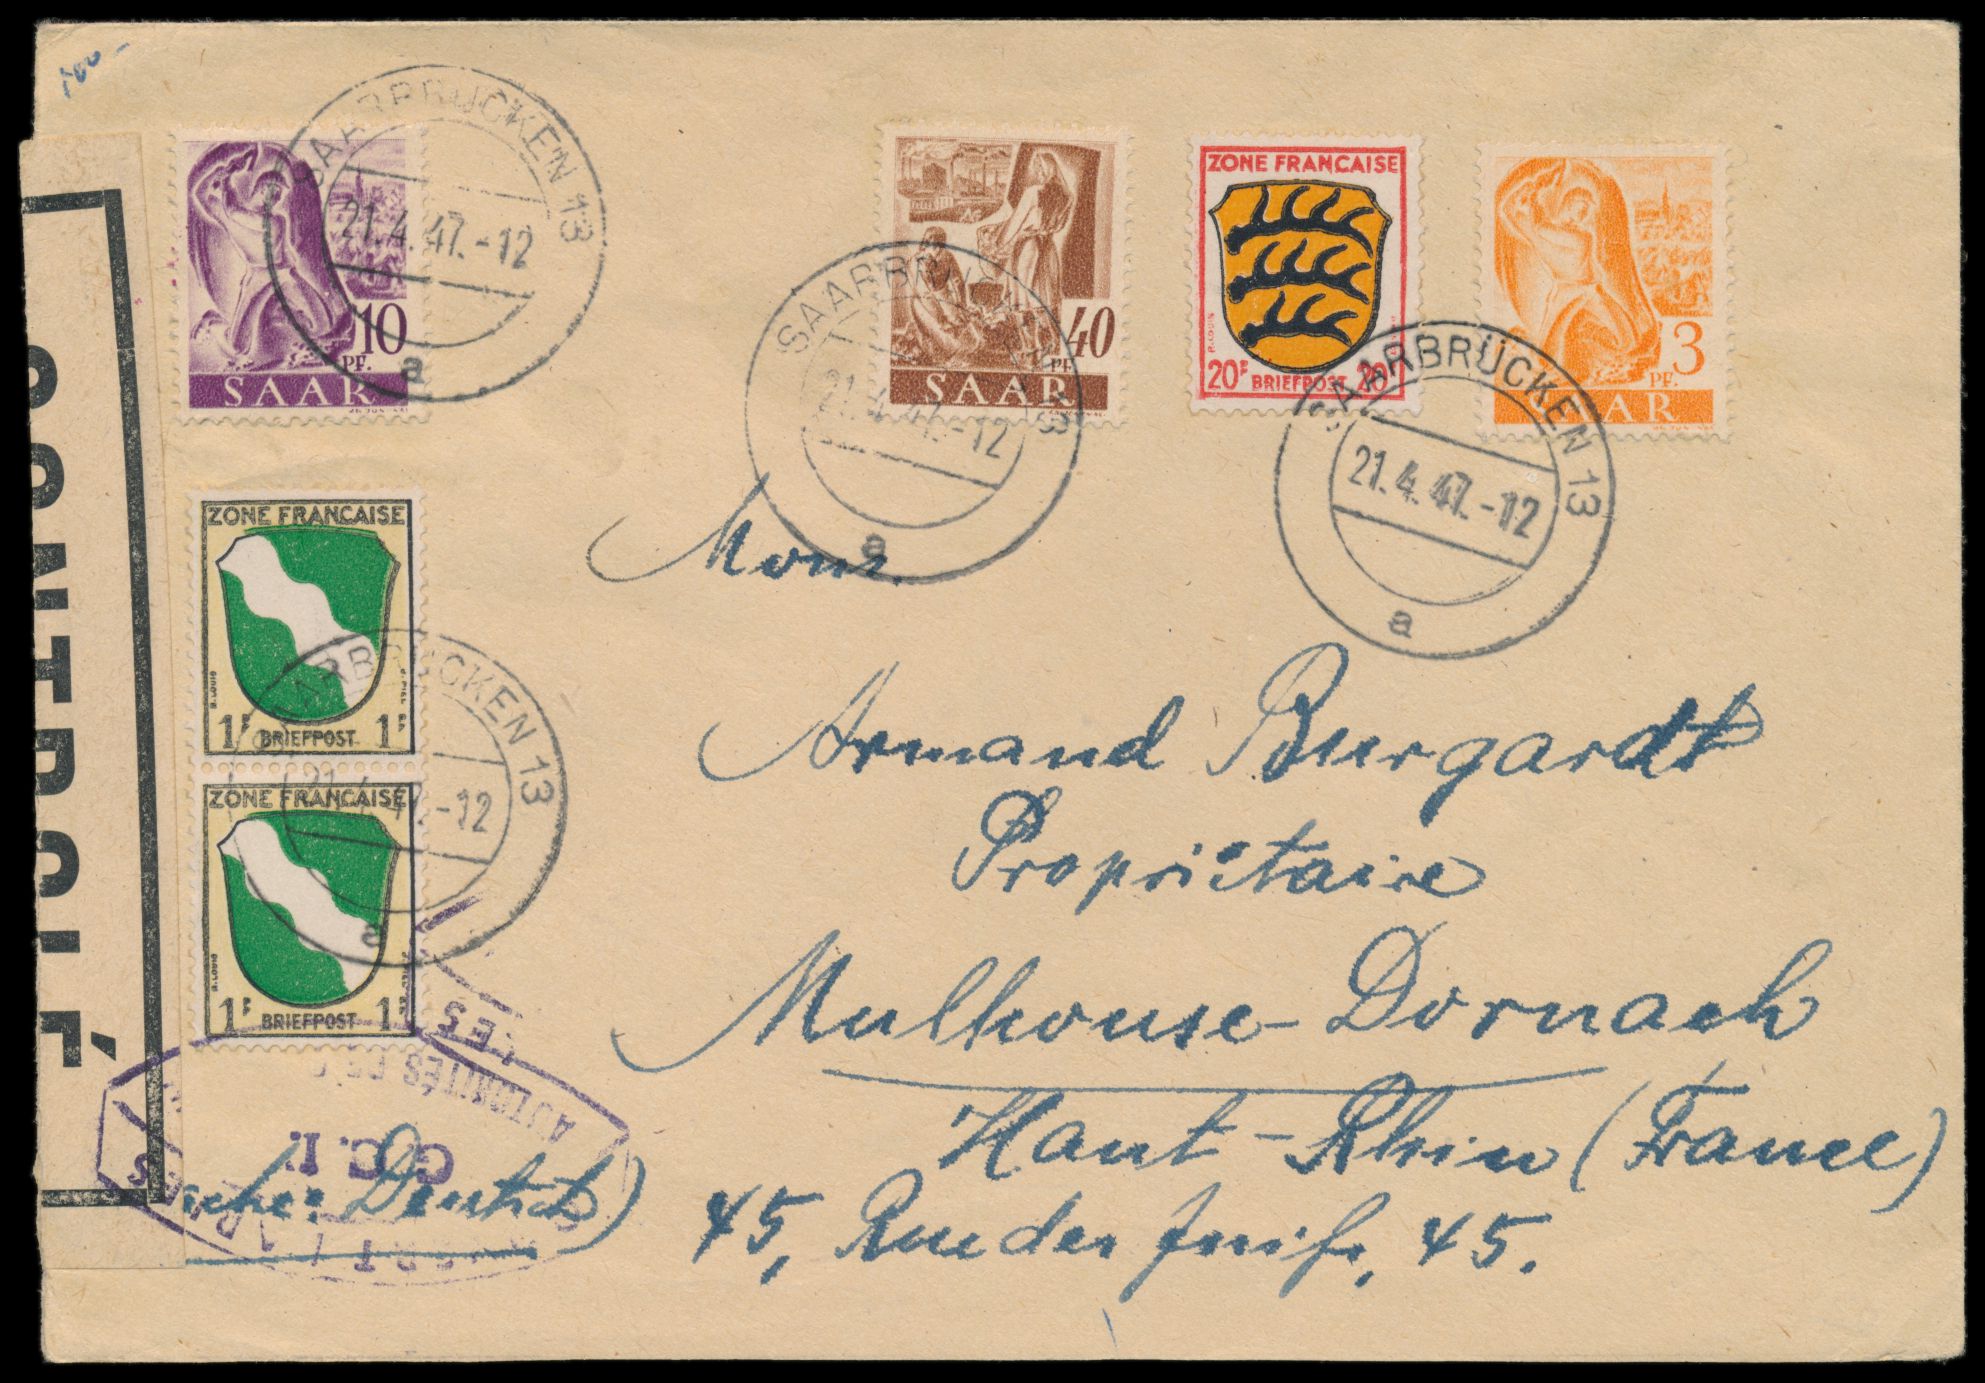 100-
SAARBRÜCKEN 13
21.4.47.-12
a
10
PF.
SAAR
SAARBRÜCKEN 13
21.4.47.-12
a
40
PF.
SAAR
ZONE FRANÇAISE
R.LOUIS
20F BRIEFPOST 20F
3
PF.
SAAR
SAARBRÜCKEN 13
21.4.47.-12
a
CONTROLÉ
ZONE FRANÇAISE
R.LOUIS
1F BRIEFPOST 1F
SAARBRÜCKEN 13
21.4.47.-12
a
ZONE FRANÇAISE
R.LOUIS
1F BRIEFPOST 1F
Mons.
Armand Burgardt
Propriétaire
Mulhouse-Dornach
Haut-Rhin (France)
45, Rue des Juifs, 45.
AUTORITÉS
G.C.
Deutsch)